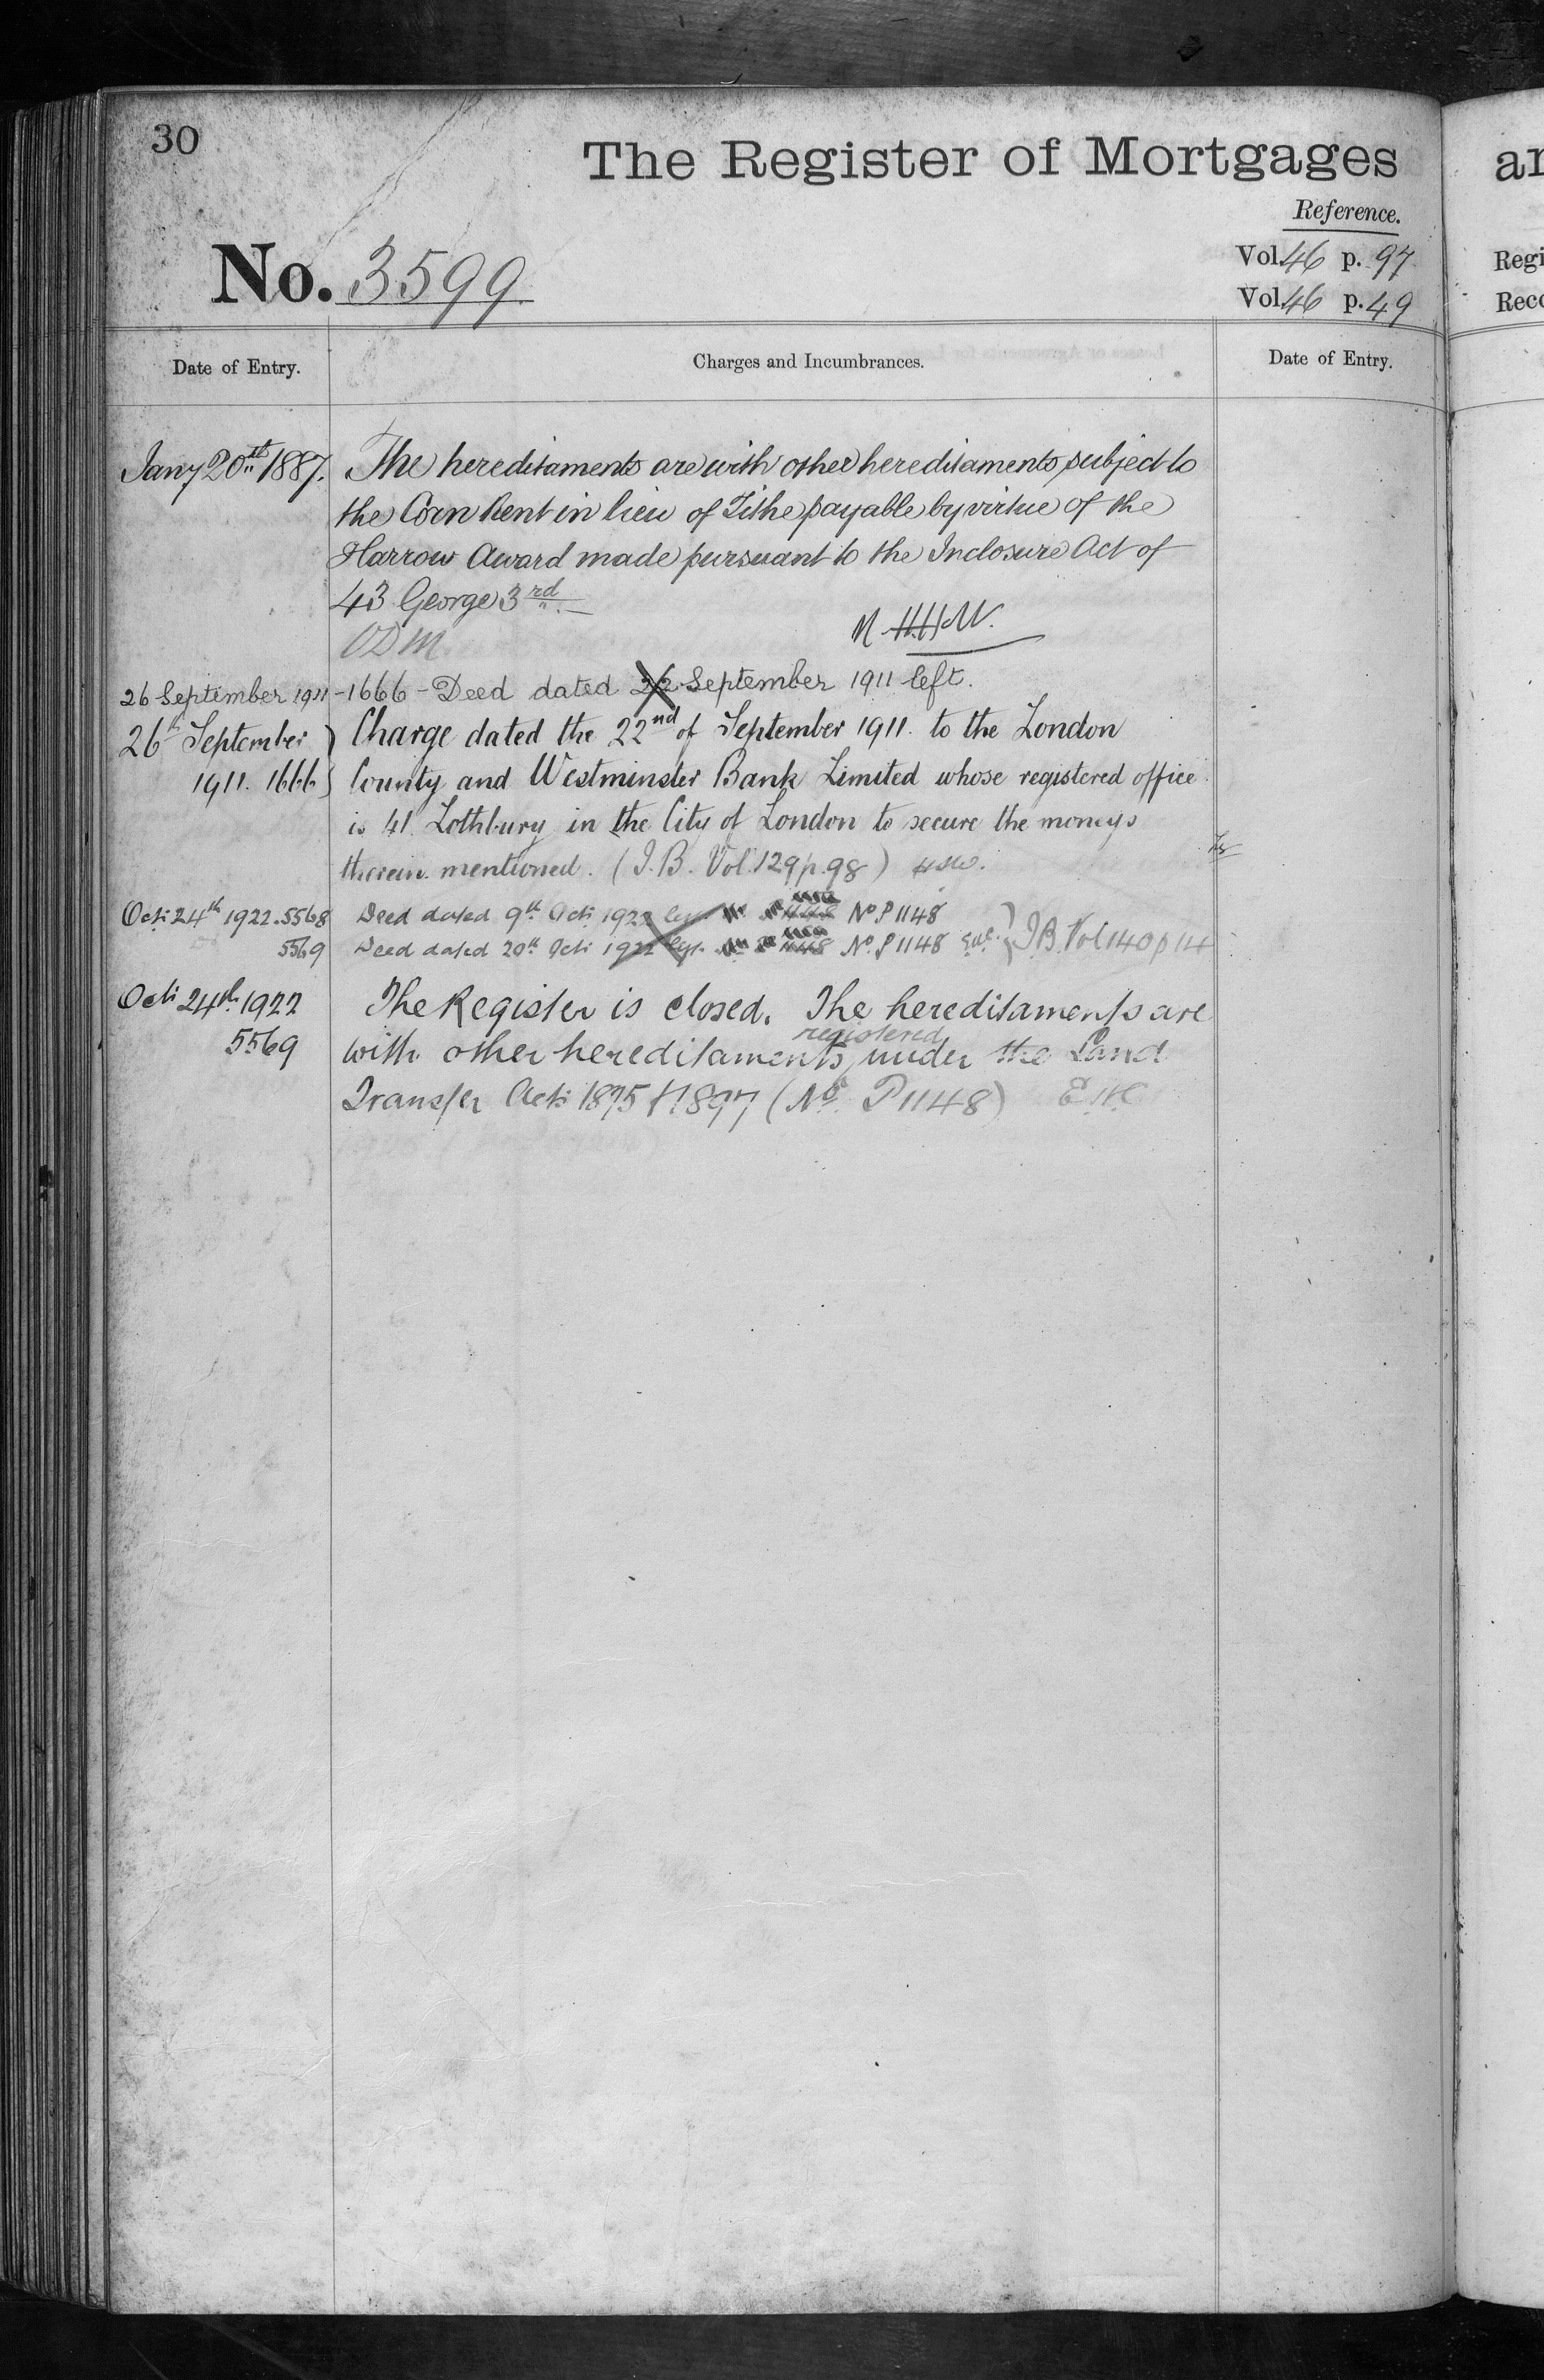 30
The Register of Mortgages
Reference.
No. 3599
Vol. 46 p. 97
Vol. 46 p. 49
Date of Entry.
Charges and Incumbrances.
Date of Entry.
Jany 20th 1887. The hereditaments are with other hereditaments subject to
the Corn Rent in lieu of Tithe payable by virtue of the
Harrow Award made pursuant to the Inclosure Act of
43 George 3rd
26 September 1911 - 1666 - Deed dated 22 September 1911 left.
26th September Charge dated the 22nd of September 1911. to the London
1911. 1666 County and Westminster Bank Limited whose registered office
is 41 Lothbury in the City of London to secure the moneys
therein mentioned. (I.B. Vol. 129 p. 98)
Oct: 24th 1922. 5568 Deed dated 9th Oct: 1922 No. P 1148
5569 Deed dated 20th Oct: 1922 No. P 1148 I.B. Vol 140 p 114
Oct: 24th 1922 The Register is closed. The hereditaments are
5569 with other hereditaments registered under the Land
Transfer Acts 1875 & 1897 (No. P 1148)
an
Regi
Reco